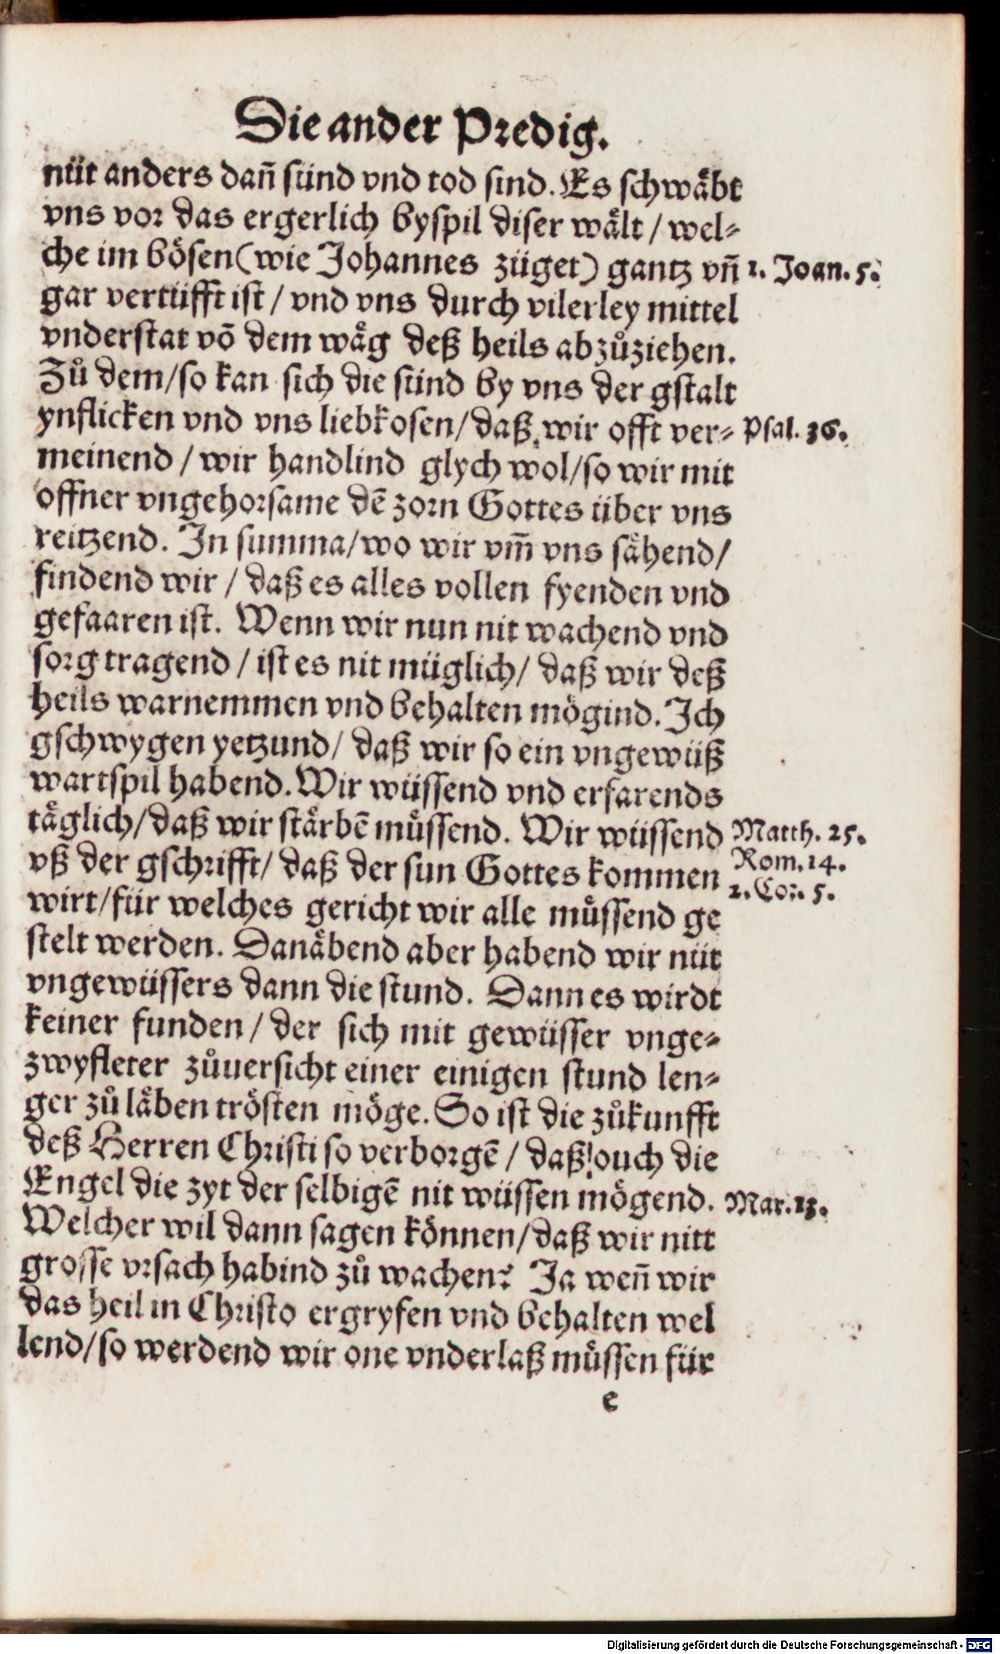 Die ander Predig.
nüt anders dañ sünd vnd tod sind. Es schwäbt
vns vor das ergerlich byspil diser wält / wel-
che im bösen (wie Johannes züget) gantz vñ
1. Joan. 5.
gar vertüfft ist / vnd vns durch vilerley mittel
vnderstat võ dem wäg deß heils abzůziehen.
Zů dem / so kan sich die sünd by vns der gstalt
ynflicken vnd vns liebkosen / daß wir offt ver-
Psal. 36.
meinend / wir handlind glych wol / so wir mit
offner vngehorsame dẽ zorn Gottes über vns
reitzend. In summa / wo wir vm̃ vns sähend /
findend wir / daß es alles vollen fyenden vnd
gefaaren ist. Wenn wir nun nit wachend vnd
sorg tragend / ist es nit müglich / daß wir deß
heils warnemmen vnd behalten mögind. Ich
gschwygen yetzund / daß wir so ein vngewüß
wartspil habend. Wir wüssend vnd erfarends
täglich / daß wir stärbẽ müssend. Wir wüssend
Matth. 25.
vß der gschrifft / daß der sun Gottes kommen
Rom. 14.
2. Cor. 5.
wirt / für welches gericht wir alle müssend ge
stelt werden. Danäbend aber habend wir nüt
vngewüssers dann die stund. Dann es wirdt
keiner funden / der sich mit gewüsser vnge-
zwyfleter zůuersicht einer einigen stund len-
ger zů läben trösten möge. So ist die zůkunfft
deß Herren Christi so verborgẽ / daß ouch die
Engel die zyt der selbigẽ nit wüssen mögend.
Mar. 13.
Welcher wil dann sagen können / daß wir nitt
grosse vrsach habind zů wachen? Ja weñ wir
das heil in Christo ergryfen vnd behalten wel
lend / so werdend wir one vnderlaß müssen für
e
Digitalisierung gefördert durch die Deutsche Forschungsgemeinschaft - DFG